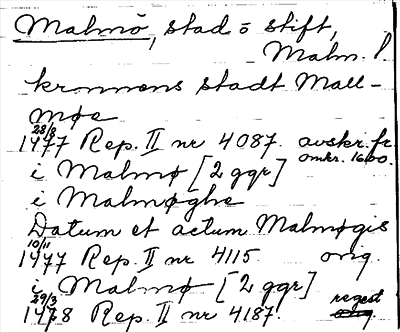 Malmö, stad o stift,
Malm. l.
kronnens stadt Mall-
møe
28/8 1477 Rep. II nr 4087. avskr. fr. omkr. 1600.
i Malmø [2 ggr]
i Malmøghe
Datum et actum Malmøgis
10/11 1477 Rep. II nr 4115. orig.
i Malmø [2 ggr]
29/3 1478 Rep. II nr 4187. regest